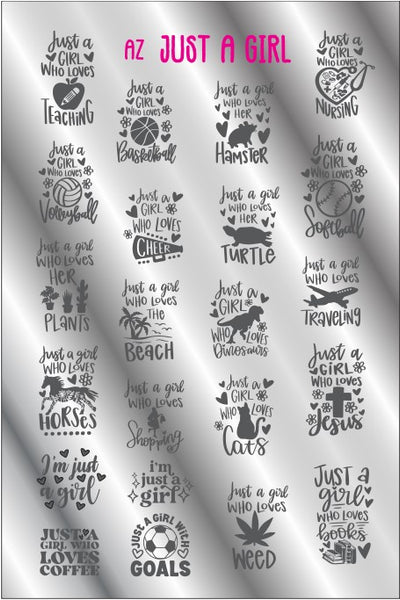 AZ JUST A GIRL
Just a
GIRL
WHO LOVES
TEACHING
Just a
GIRL
WHO LOVES
Basketball
Just a girl
WHO LOVES
HER
HAMSTER
Just a
GIRL
WHO LOVES
NURSING
Just a
GIRL
WHO LOVES
Volleyball
Just a
GIRL
WHO LOVES
CHEER
Just a girl
WHO LOVES
HER
TURTLE
Just a
GIRL
WHO LOVES
Softball
Just a girl
WHO LOVES
HER
PLANTS
Just a girl
WHO LOVES
THE
BEACH
Just a
GIRL
WHO LOVES
Dinosaurs
Just a girl
WHO LOVES
TRAVELING
Just a girl
WHO LOVES
HORSES
Just a girl
WHO LOVES
Shopping
Just a
GIRL
WHO LOVES
Cats
Just a
GIRL
WHO LOVES
Jesus
I'm just
a girl
i'm
just a
girl
Just a girl
WHO LOVES
WEED
JUST A
girl
WHO LOVES
books
JUST A
GIRL WHO
LOVES
COFFEE
JUST A GIRL WITH
GOALS